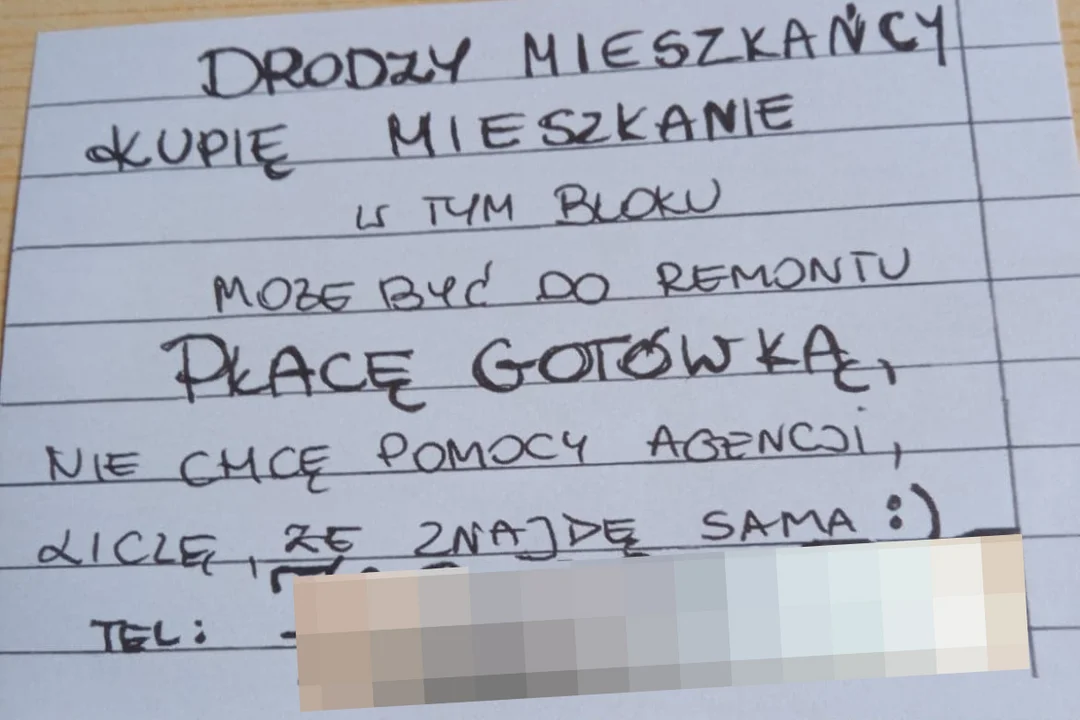 DRODZY MIESZKAŃCY
KUPIĘ MIESZKANIE
W TYM BLOKU
MOŻE BYĆ DO REMONTU
PŁACĘ GOTÓWKĄ,
NIE CHCĘ POMOCY AGENCJI,
LICZĘ, ŻE ZNAJDĘ SAMA :)
TEL: